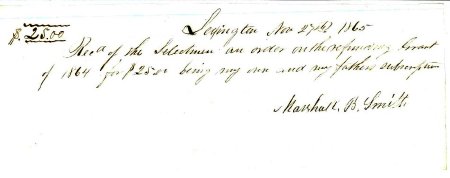 $25.00
Lexington Nov 27th 1865
Recd of the Selectmen an order on the refunding Grant
of 1864 for $25.00 being my own and my father's subscription
Marshall B. Smith